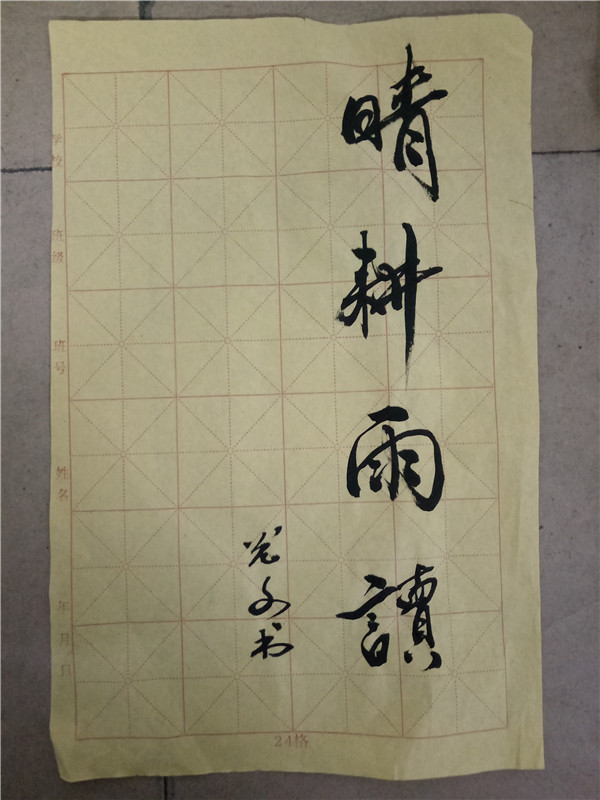 晴耕雨讀
书
学校
班级
班号
姓名
年月日
24格